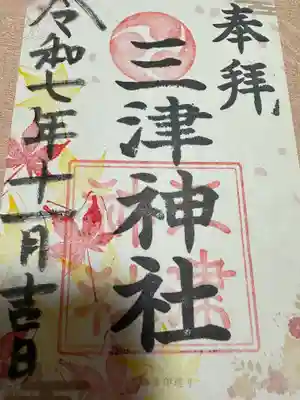 奉拝
三津神社
令和七年十一月吉日